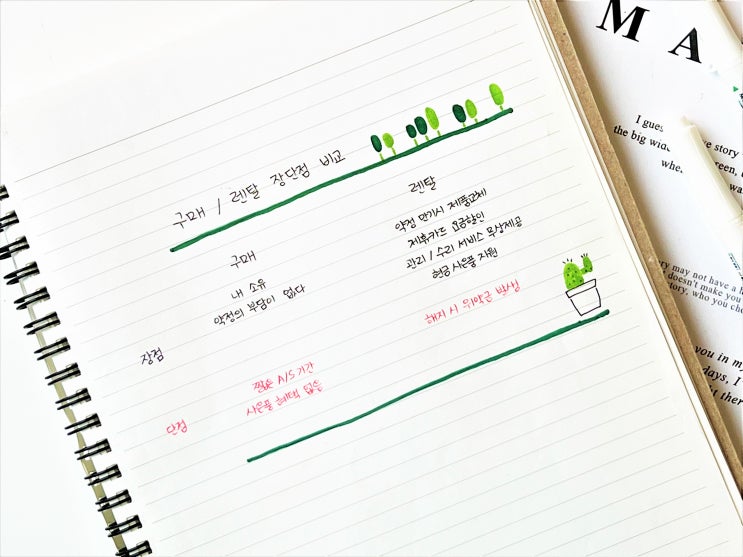 구매 / 렌탈 장단점 비교
구매
렌탈
장점
내 소유
약정의 부담이 없다
약정 만기시 제품교체
제휴카드 요금할인
관리 / 수리 서비스 무상제공
현금사은품 지원
단점
짧은 A/S 기간
사은품 혜택 없음
해지 시 위약금 발생
M A
I gues
e story
the big wid
reen,
whe
wa
ry may not have a
doesn't make you
story, who you
you in my
days, I
t ther